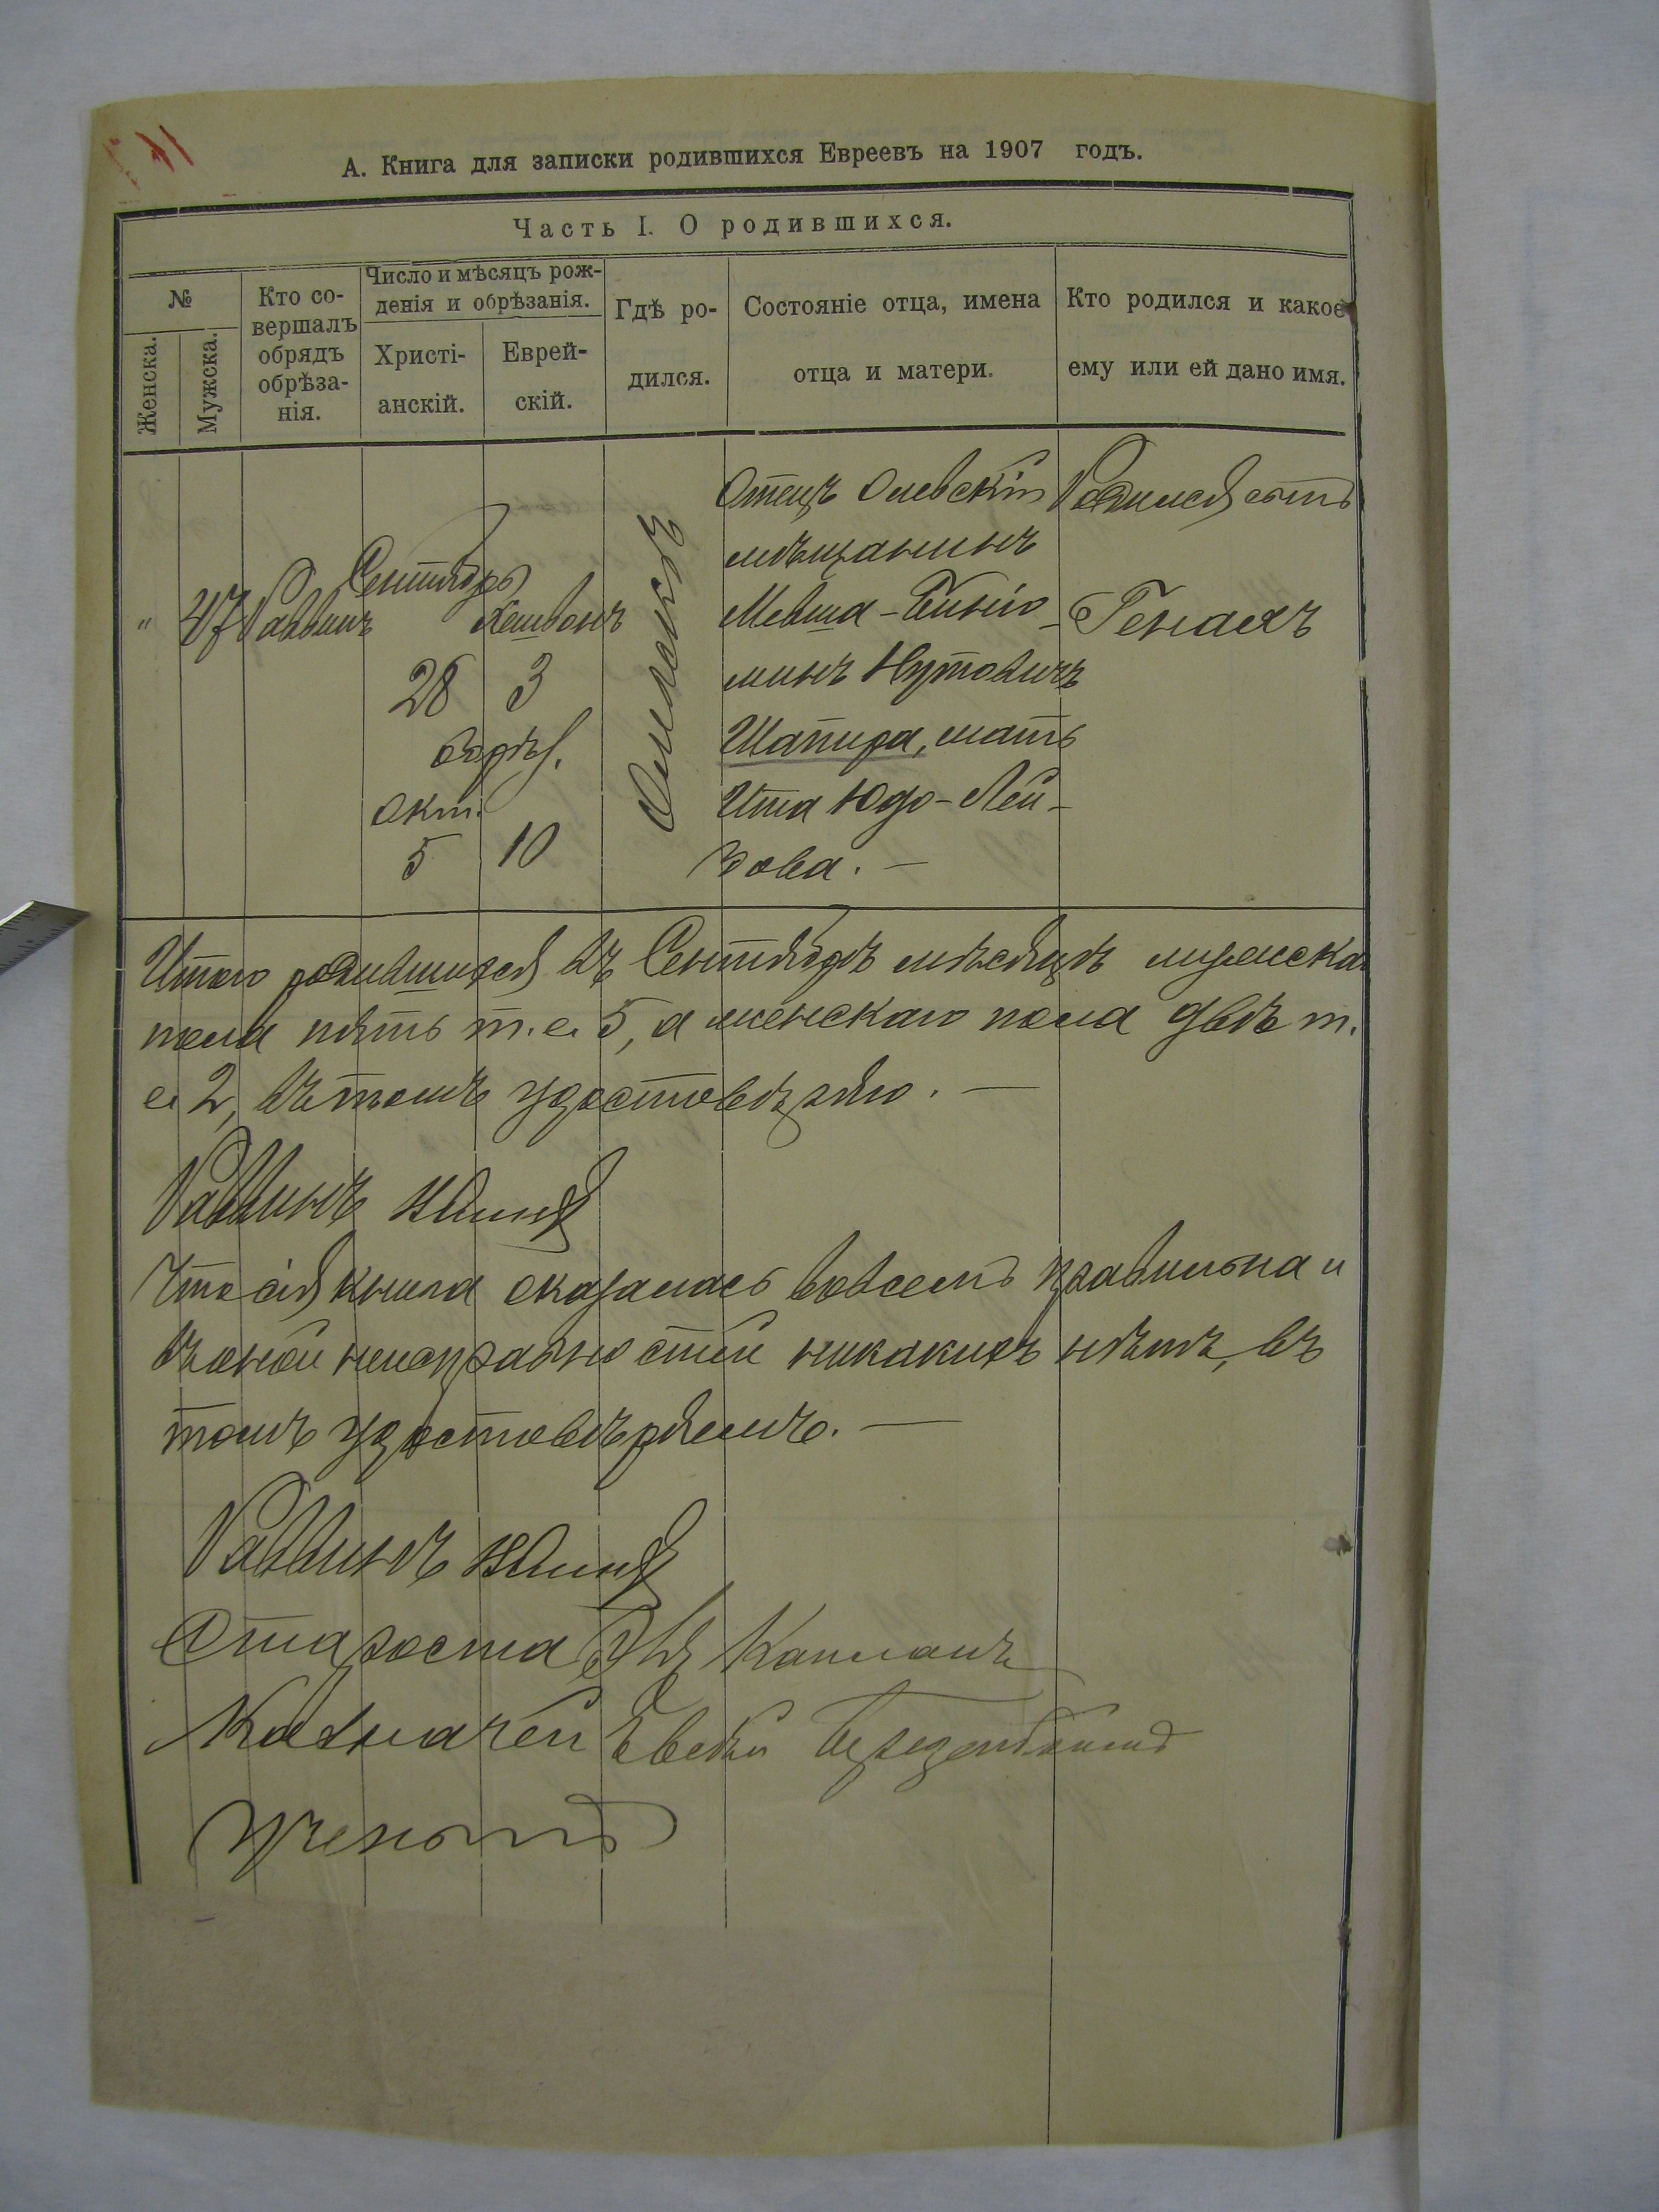 А. Книга для записки родившихся Евреевъ на 1907 годъ.
Часть I. О родившихся.
№
Женска.
Мужска.
Кто со-
вершалъ
обрядъ
обрѣза-
нія.
Число и мѣсяцъ рож-
денія и обрѣзанія.
Христі-
анскій.
Еврей-
скій.
Гдѣ ро-
дился.
Состояніе отца, имена
отца и матери.
Кто родился и какое
ему или ей дано имя.
"
47
Раввинъ
Сентябрь
Хешвонъ
28 3
Окт.
5 10
Отецъ Олевскій
мѣщанинъ
Мевша-Бинiо-
минъ Нутовичъ
Шапира, мать
Ита Юдо-Лей-
зова. —
Родился сынъ
Генахъ
Итого родившихся въ Сентябрѣ мѣсяцѣ мужска
пола пять т. е. 5, а женскаго пола двѣ т.
е. 2, въ томъ удостовѣряю. —
Раввинъ
Что сія книга оказалась вовсемъ правильна и
въ оной неисправностей никакихъ нѣтъ, въ
томъ удостовѣряемъ. —
Раввинъ
Староста Капланъ
Казначей
Ученый